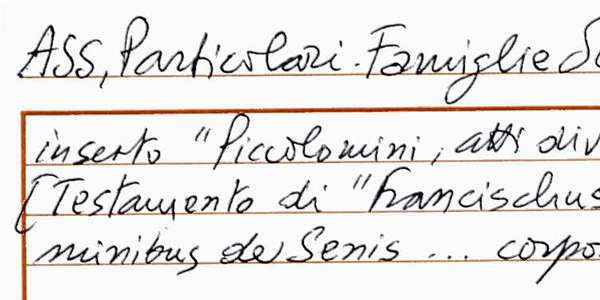 ASS, Particolari. Famiglie
inserto "Piccolomini, atti div
[Testamento di "Francischus
minibus de Senis ... corpo